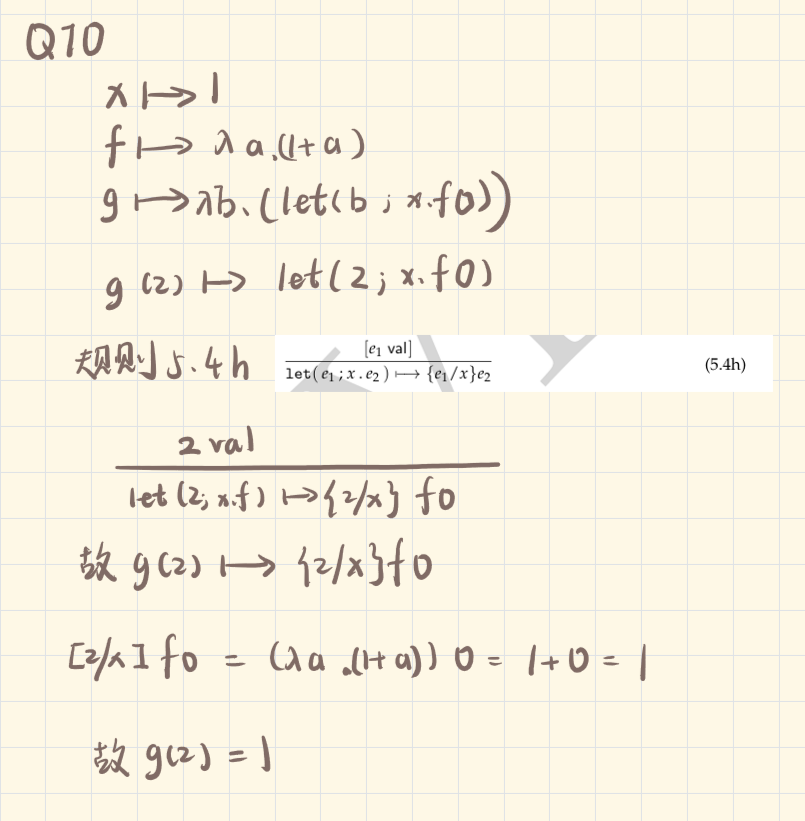 Q10
x ⟼ 1
f ⟼ λ a.(1+a)
g ⟼ λb.(let(b ; x.f0))
g (2) ⟼ let(2 ; x.f0)
规则 5.4h [e₁ val]
let(e₁;x.e₂) ⟼ {e₁/x}e₂ (5.4h)
2 val
let (2; x.f) ⟼ {2/x} f0
故 g(2) ⟼ {2/x}f0
[2/x] f0 = (λa.(1+a)) 0 = 1+0 = 1
故 g(2) = 1